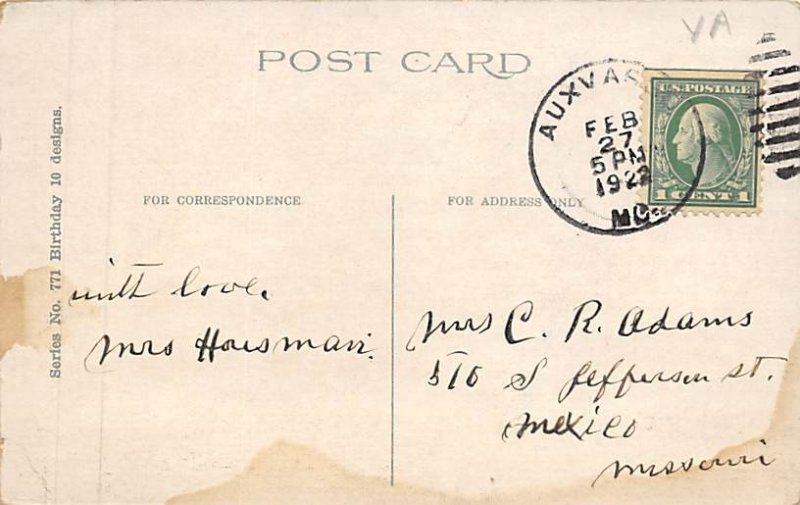 VA
POST CARD
AUXVAS
FEB
27
5 PM
1922
MO.
U.S. POSTAGE
1 CENT 1
FOR CORRESPONDENCE
FOR ADDRESS ONLY
Series No. 771 Birthday 10 designs.
with love.
Mrs Housman.
Mrs C. R. Adams
510 S Jefferson st.
Mexico
Missouri